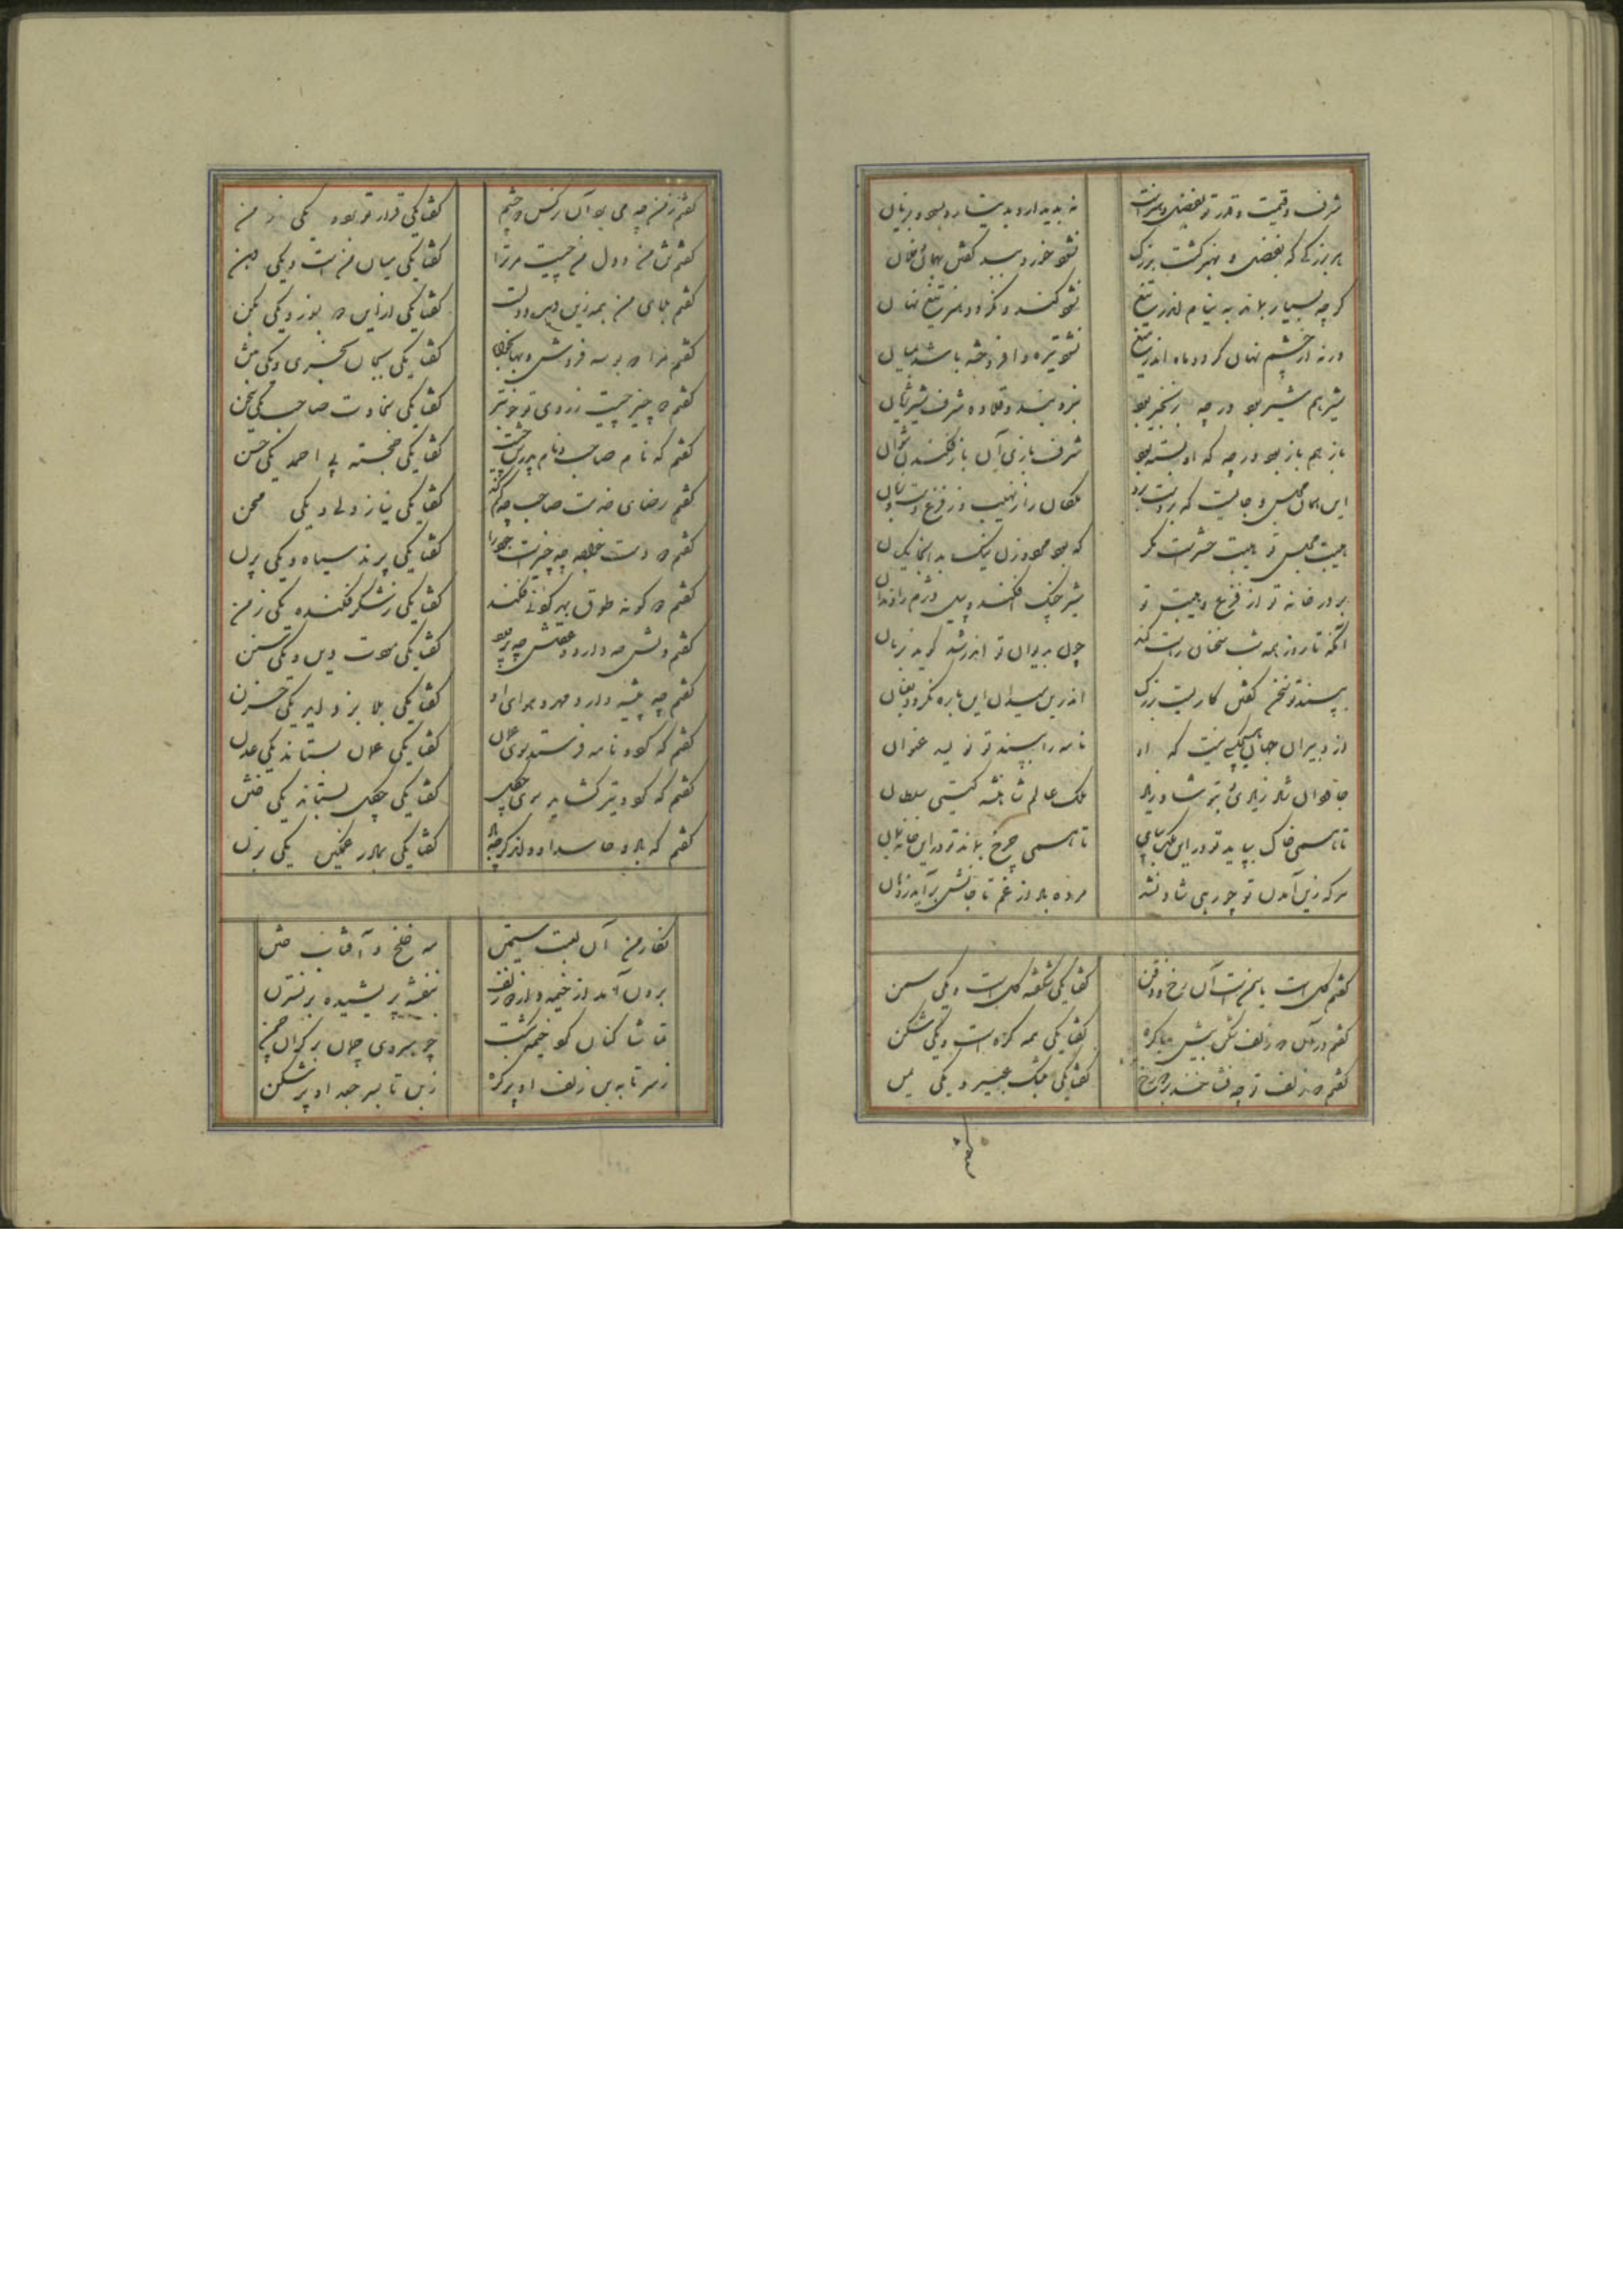 شرف و قیمت و قدر تو بفضل و هنرست نه بدیدار و بدینار و بسود و بزیان
هر بزرگی که بفضل و بهنر گشت بزرگ نشود خرد ببد گفتن بهمان و فلان
گرچه بسیار بماند به نیام اندر تیغ نشود کند و نگردد هنر تیغ نهان
ورچه از چشم نهان گردد ماه اندر میغ نشود تیره و افروخته باشد بمیان
شیر هم شیر بود ورچه بزنجیر بود نبرد بند و قلاده شرف شیر ژیان
باز هم باز بود ورچه که او بسته بود شرف بازی از باز فکندن نتوان
این همان مجلس و جاییست که بود
هیبت مجلس تو هیبت حشرست مگر که بود
بر در خانه تو از فزع و هیبت تو شیر چنگ افکند و پیل دژم
آنکه تا روز همه شب سخنان راست کند چون بدیوان تو اندر شد گوید
بپسند تو سخن گفتن کاریست بزرگ اندرین میدان این باره نگردد
از دبیران جهان هیچکسی نیست که او نامه را بپسند تو نویسد عنوان
ملک عالم شاهنشه گیتی سلطان
تا همی خاک بپاید تو درین ملک بپای تا همی چرخ بماند تو درین خانه بمان
هر که زین آمدن تو چو رهی شاد نشد مرده باد از غم تا جانش برآید ز دهان
گفتم گلست یا سمنست آن رخ و ذقن گفتا یکی شکفته گلست و یکی سمن
گفتم در آن دو زلف شکن بیش یا گره گفتا یکی همه گرهست و یکی شکن
گفتم دو زلف تو چه فشانند بر دو رخ گفتا یکی بمشک عبیر و یکی
گفتم
گفتم ز من چه می برد آن نرگس دو چشم گفتا یکی قرار تو برد و یکی ز من
گفتم تن من و دل من چیست مر ترا گفتا یکی میان منست و یکی دهن
گفتم بلای من همه زین دیده و دلست گفتا یکی ازین دو بسوز و یکی بکن
گفتم مرا دو بوسه فروش و بها بخواه گفتا یکی بجان بخری و یکی بتن
گفتم دو چیز چیست ز روی تو خوبتر گفتا یکی سخاوت صاحب یکی سخن
گفتم که نام صاحب و نام پدرش چیست گفتا یکی خجسته پی احمد یکی حسن
گفتم رضای خدمت صاحب چه کم کند گفتا یکی نیاز ولی و یکی محن
گفتم دو دست خواجه چه چیزست جود را گفتا یکی
گفتم دو گونه طوق بهر گردنی فکند گفتا یکی ز شکر فکنده یکی ز من
گفتم دلش چه دارد و عقلش چه پرورد گفتا یکی مودت دین و یکی سنن
گفتم چه پیشه دارد و مهر و هوای او گفتا یکی بلا برد از دل یکی حزن
گفتم که گرد نامه فرستد سوی عمان گفتا یکی عمان بستاند یکی عدن
گفتم که گر دو تیر گشاید سوی چگل گفتا یکی چگل بستاند یکی ختن
گفتم که باد و حاسد او و اندر گفتا یکی بمادر غمگین یکی بزن
نگار من آن لعبت سیمتن مه خلخ و آفتاب ختن
برون آمد از خیمه و از دو زلف بنفشه پریشیده بر نسترن
تماشا کنان گرد خیمه بگشت چو سروی چمان بر کران چمن
ز سر تا به بن زلف او پر گره ز بن تا بسر جعد او پر شکن